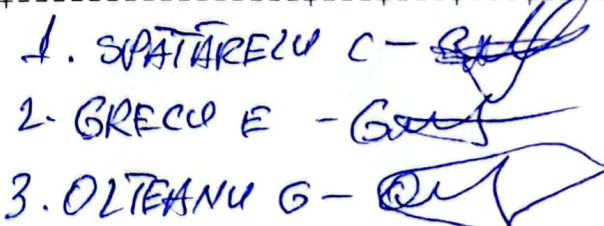 1. SPĂTĂRELU C -
2. GRECU E -
3. OLTEANU G -